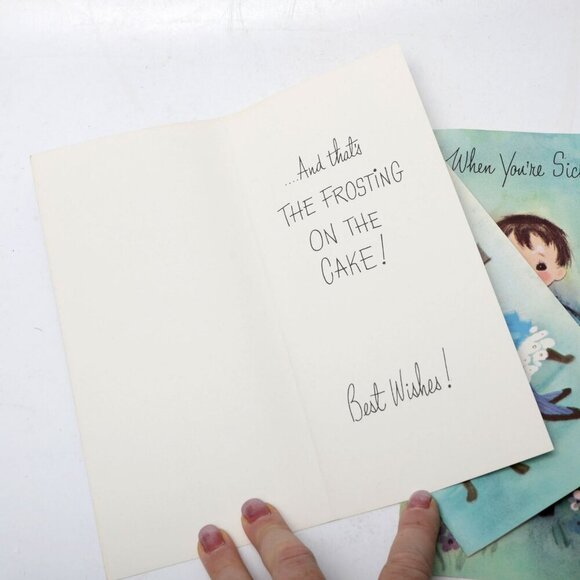 ...And that's
THE FROSTING
ON THE
CAKE!
Best Wishes!
When You're Sick